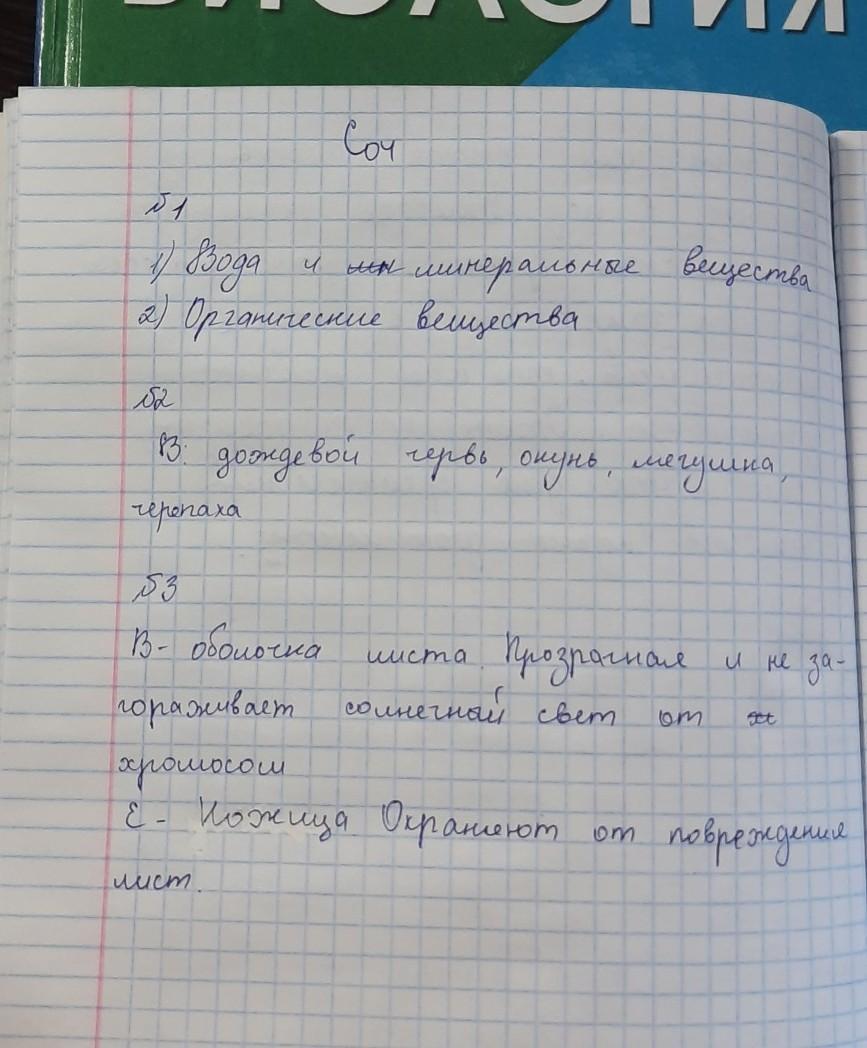 БИОЛОГИЯ
Соч
№1
1) Вода и минеральные вещества
2) Органические вещества
№2
В: дождевой червь, окунь, лягушка,
черепаха
№3
В- оболочка листа. Прозрачная и не за-
гораживает солнечный свет от
хромосом
Е- Кожица Охраняют от повреждения
лист.